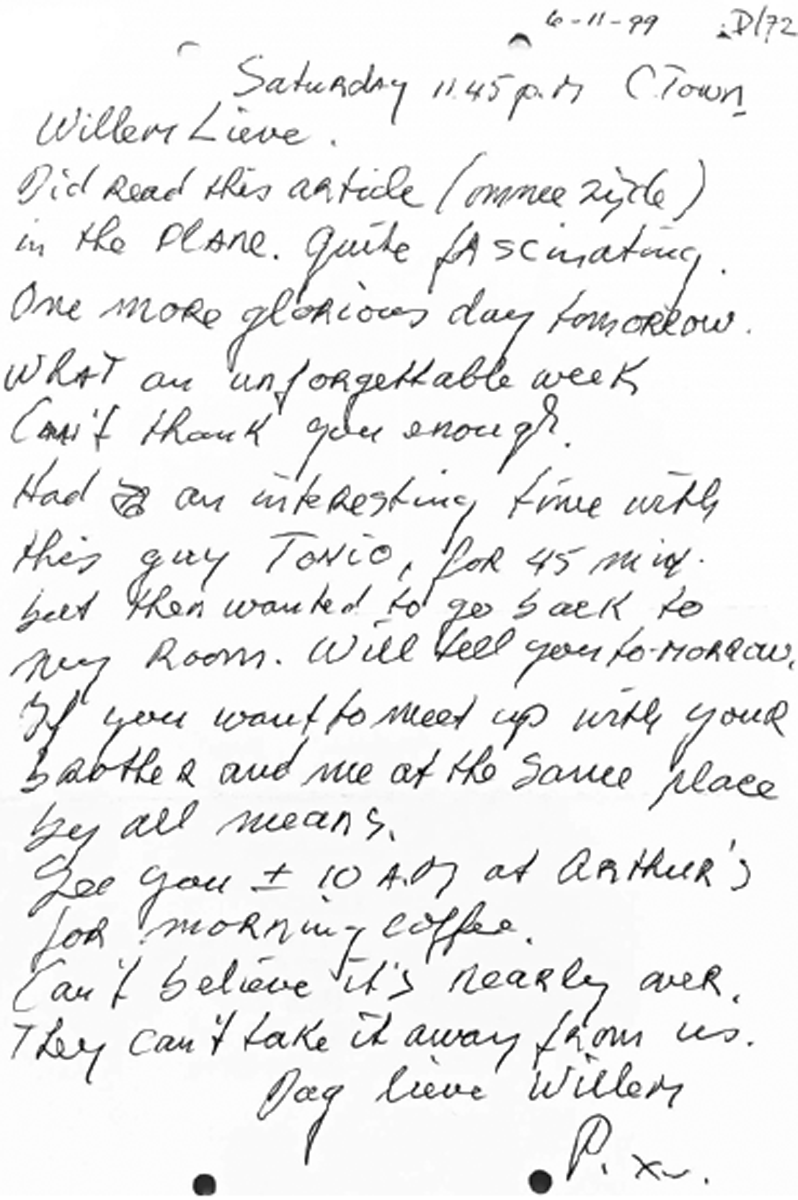 6-11-99 D/72
Saturday 11.45 p.M C.Town
Willem Lieve.
Did Read this article (ommee zijde)
in the PLANE. Quite fAscinating.
One more glorious day tomorrow.
What an unforgettable week
Can't thank you enough.
Had an interesting time with
this guy Tonio, for 45 min.
but then wanted to go back to
my Room. Will tell you to-morrow.
If you want to meet up with your
brother and me at the same place
by all means.
See you ± 10 A.M at Arthur's
for morning coffee.
Can't believe it's nearly over.
They can't take it away from us.
Dag lieve Willem
P. x